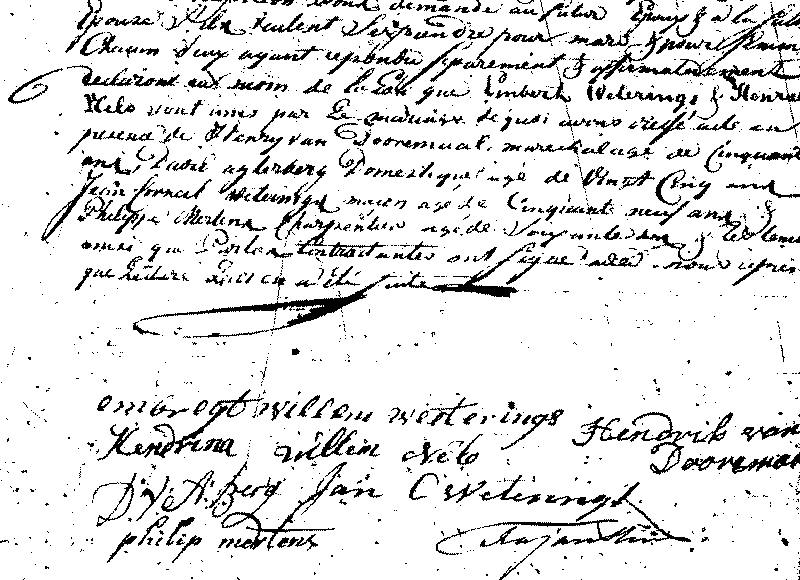 demande au futur Epoux & a la futur
Epouse S'ils veulent se prendre pour mari & pour femme
Chacun d'eux ayant repondu separement & affirmativement
declarons au nom de la Loi que Embert Weterings & Henri
Nelo sont unis par le mariage de quoi avons dressé acte en
presence de Henry van Dooremaal, marechal agé de Cinquant
ans, David agterberg Domestique agé de Vingt Cinq ans
Jean Cornel Weterings maçon agé de Cinquant neuf ans &
Philippe Mertens Charpentier agé de Soixante ans & les
ainsi que Partie Contractantes ont signé nous apres
que lecture Leur en a été faite
embregt willem westerings Hendrik van
Hendrina willem Nelo Doorema
D V A Berg Jan C Weterings
philip mertens